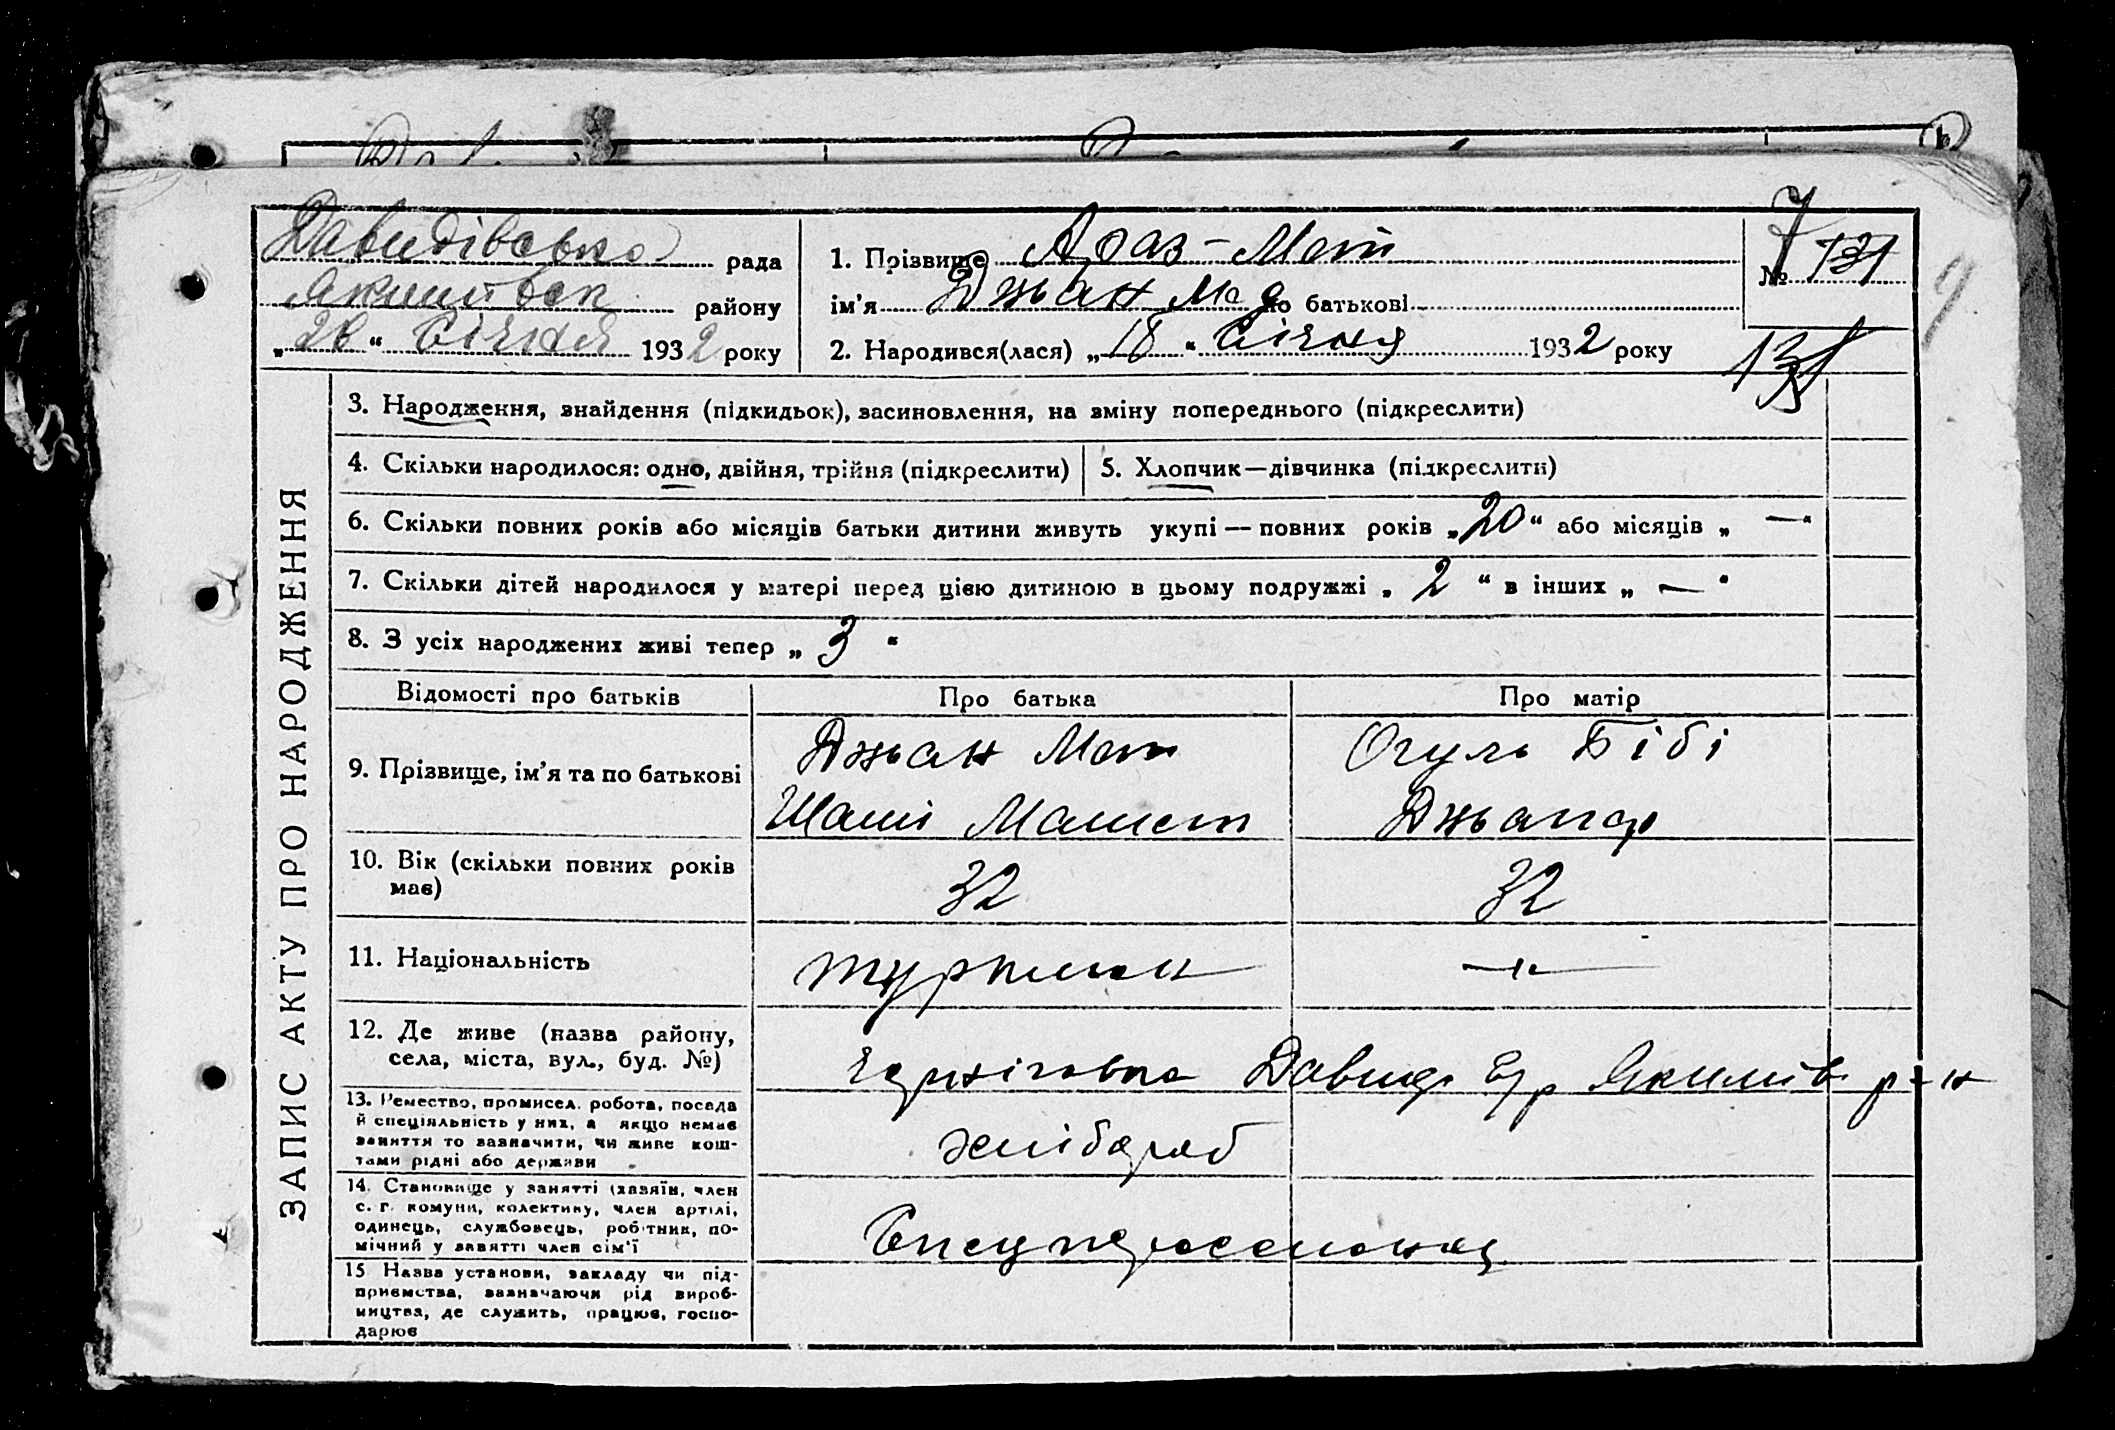 Давидівсько рада
Якимівськ району
„20“ Січня 1932 року
1. Прізвище Араз-Мет
ім’я Джан Мад по батькові
2. Народився(лася) „18“ Січня 1932 року
7
№ 131
131
9
ЗАПИС АКТУ ПРО НАРОДЖЕННЯ
3. Народження, знайдення (підкидьок), засиновлення, на зміну попереднього (підкреслити)
4. Скільки народилося: одно, двійня, трійня (підкреслити)
5. Хлопчик—дівчинка (підкреслити)
6. Скільки повних років або місяців батьки дитини живуть укупі — повних років „20“ або місяців „—“
7. Скільки дітей народилося у матері перед цією дитиною в цьому подружжі „2“ в інших „—“
8. З усіх народжених живі тепер „3“
Відомості про батьків
Про батька
Про матір
9. Прізвище, ім’я та по батькові
Джан Мет
Шалі Мамет
Огуль Бібі
Джапар
10. Вік (скільки повних років має)
32
32
11. Національність
туркмен
—„—
12. Де живе (назва району,
села, міста, вул., буд. №)
Давид с/р Якимів р-н
13. Ремество, промисел, робота, посада
й спеціяльність у них, а якщо немає
заняття то зазначити, чи живе кош-
тами рідні або держави
хлібороб
14. Становище у занятті (хазяїн, член
с. г. комуни, колективу, член артілі,
одинець, службовець, робітник, по-
мічний у занятті член сім’ї
Спецпереселенец
15 Назва установи, закладу чи під-
приємства, зазначаючи рід вироб-
ництва, де служить, працює, госпо-
дарює